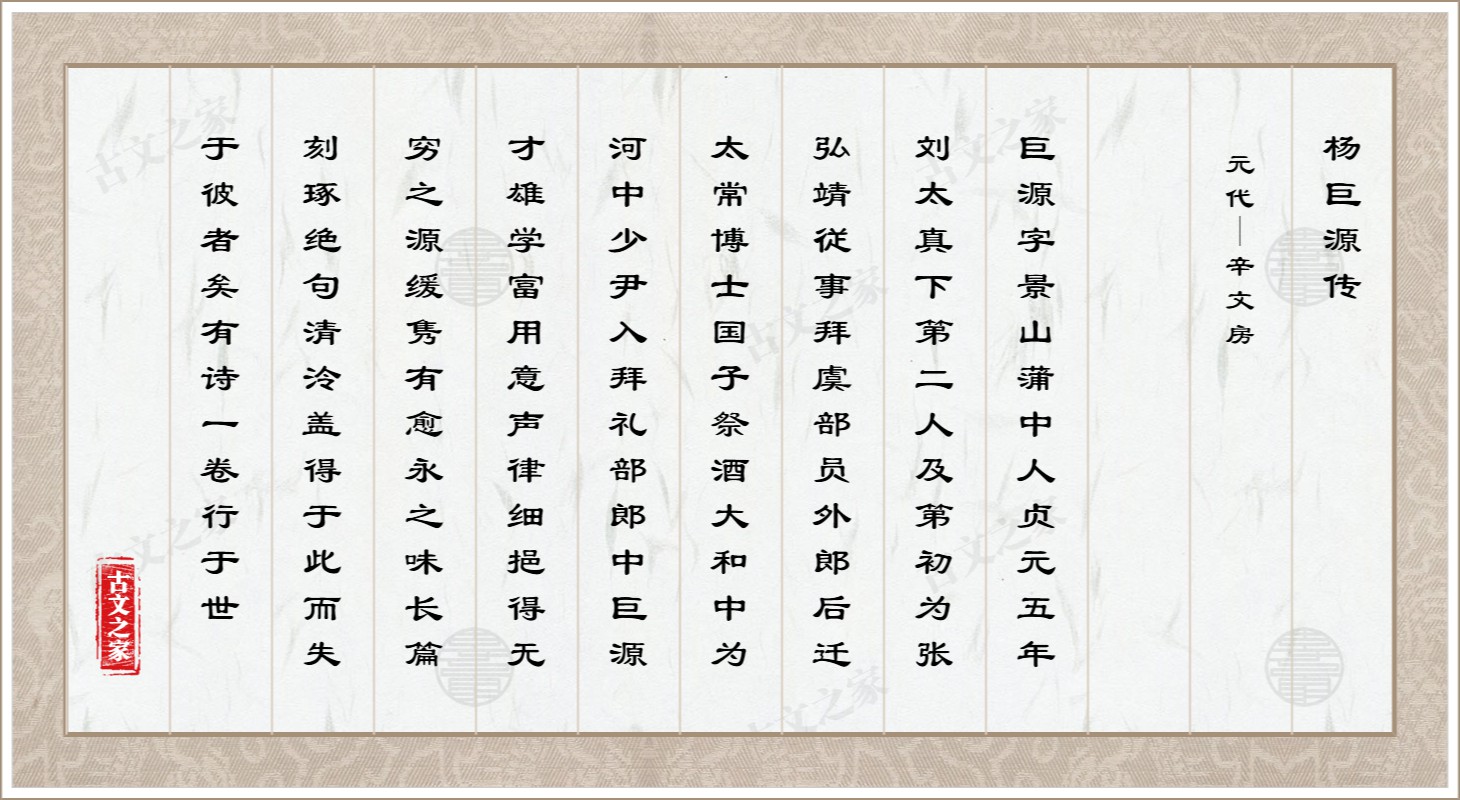 杨巨源传
元代—辛文房
巨源字景山蒲中人贞元五年
刘太真下第二人及第初为张
弘靖従事拜虞部员外郎后迁
太常博士国子祭酒大和中为
河中少尹入拜礼部郎中巨源
才雄学富用意声律细挹得无
穷之源缓隽有愈永之味长篇
刻琢绝句清泠盖得于此而失
于彼者矣有诗一卷行于世
古文之家